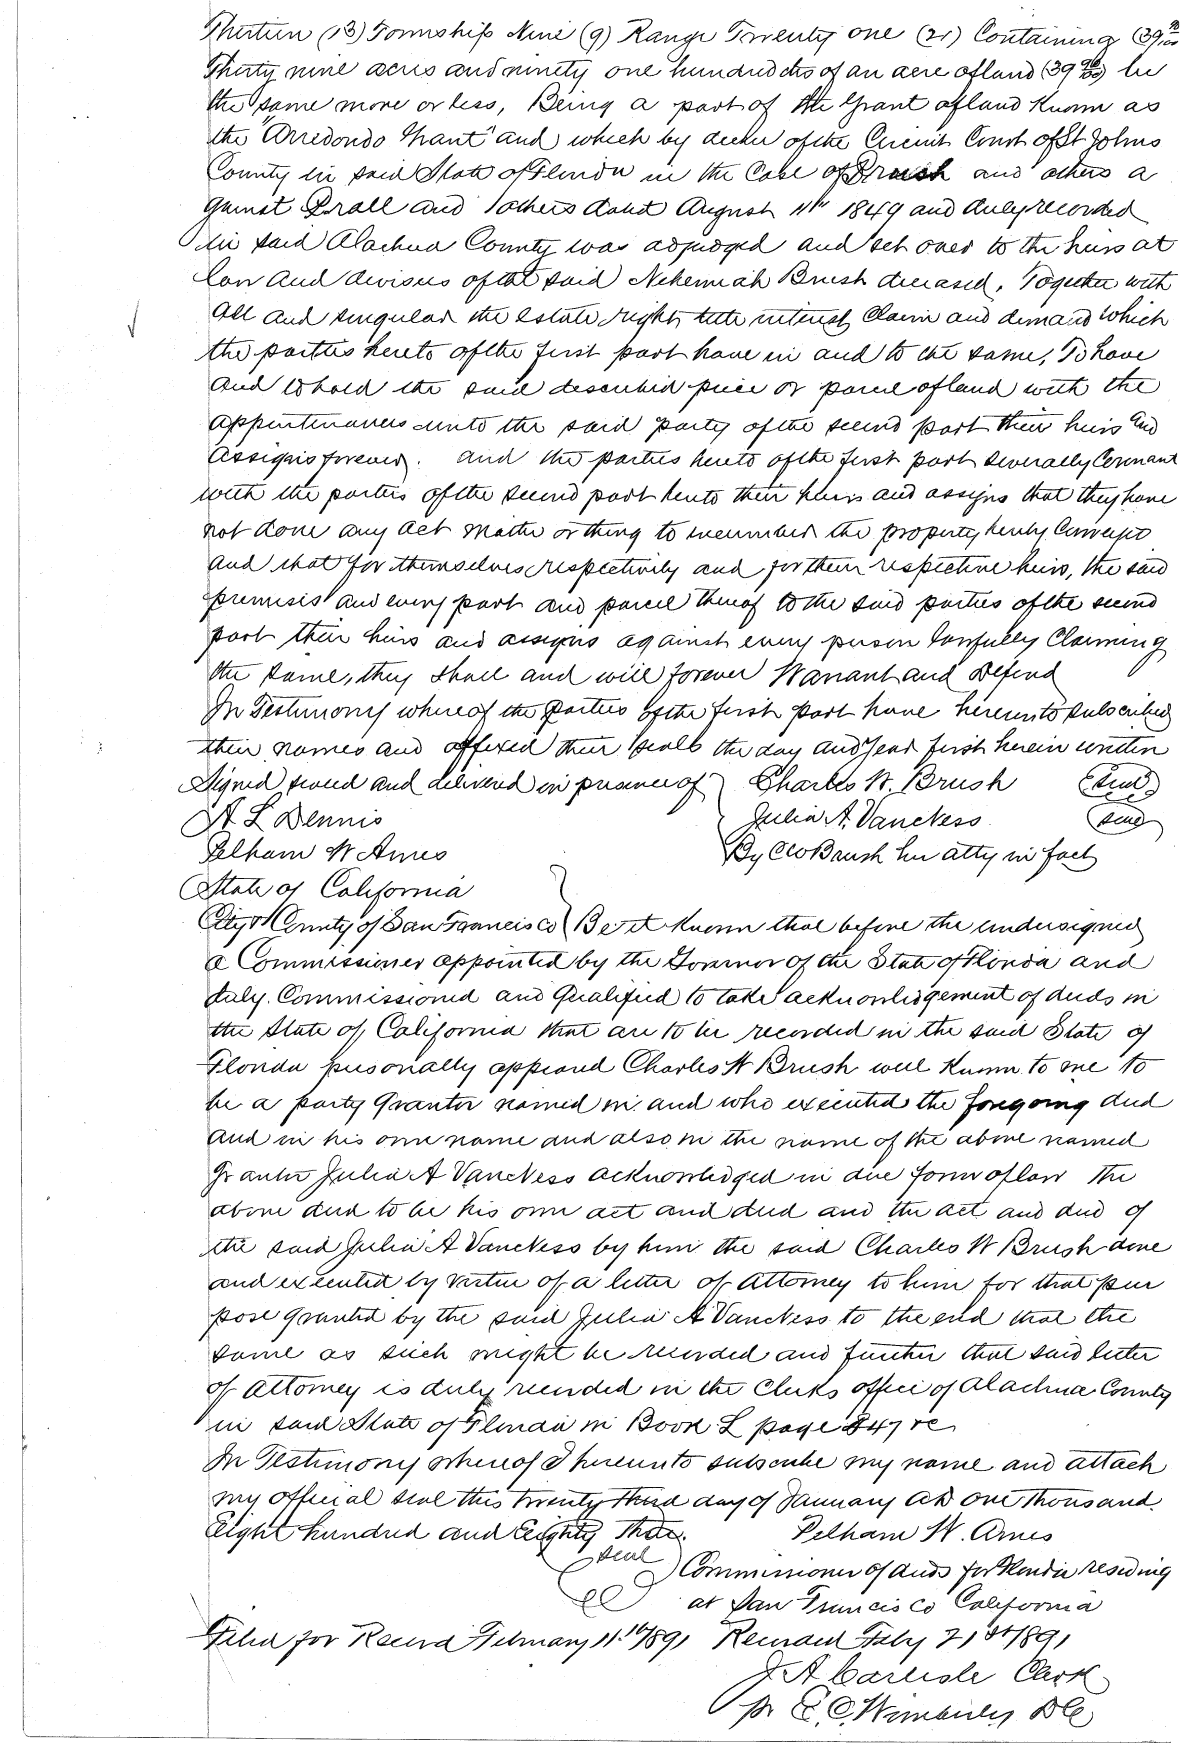 Thirteen (13) Township Nine (9) Range Twenty one (21) Containing (39 90/100
Thirty nine acres and ninety one hundredths of an acre of land (39 90/100) be
the same more or less, Being a part of the Grant of land Known as
the "Arredondo Grant" and which by decree of the Circuit Court of St Johns
County in said State of Florida in the Case of Brush and others a
gainst Drall and others dated August 11th 1849 and duly recorded
in said Alachua County was adjudged and set over to the heirs at
law and devisees of the said Nehemiah Brush deceased, Together with
all and singular the estate right title interest Claim and demand which
the parties hereto of the first part have in and to the same, To have
and to hold the said described piece or parcel of land with the
appurtenances unto the said party of the second part their heirs and
assigns forever. and the parties hereto of the first part severally Covenant
with the parties of the second part hereto their heirs and assigns that they have
not done any act matter or thing to incumber the property hereby Conveyed
and that for themselves respectively and for their respective heirs, the said
premises and every part and parcel thereof to the said parties of the second
part their heirs and assigns against every person lawfully Claiming
the same, they shall and will forever Warrant and Defend
In Testimony whereof the parties of the first part have hereunto subscribed
their names and affixed their seals the day and year first herein written
Signed sealed and delivered in presence of } Charles W. Brush (seal)
A L Dennis Julia A. VanNess (seal)
Pelham W Ames By CW Brush her atty in fact
State of California
City & County of San Francisco } Be it Known that before the undersigned
a Commissioner appointed by the Governor of the State of Florida and
duly Commissioned and Qualified to take acknowledgement of deeds in
the State of California that are to be recorded in the said State of
Florida personally appeared Charles W Brush well Known to me to
be a party Grantor named in and who executed the foregoing deed
and in his own name and also in the name of the above named
Grantor Julia A VanNess acknowledged in due form of law the
above deed to be his own act and deed and the act and deed of
the said Julia A VanNess by him the said Charles W Brush done
and executed by virtue of a letter of Attorney to him for that pur
pose granted by the said Julia A VanNess to the end that the
same as such might be recorded and further that said letter
of Attorney is duly recorded in the Clerks office of Alachua County
in said State of Florida in Book L page 847 &c
In Testimony whereof I hereunto subscribe my name and attach
my official seal this twenty third day of January AD one thousand
Eight hundred and Eighty Three. Pelham W. Ames
seal Commissioner of deeds for Florida residing
at San Francisco California
Filed for Record February 11th 1891 Recorded Feby 21st 1891
J A Carlisle Clerk
pr E. C. Wimberly DC